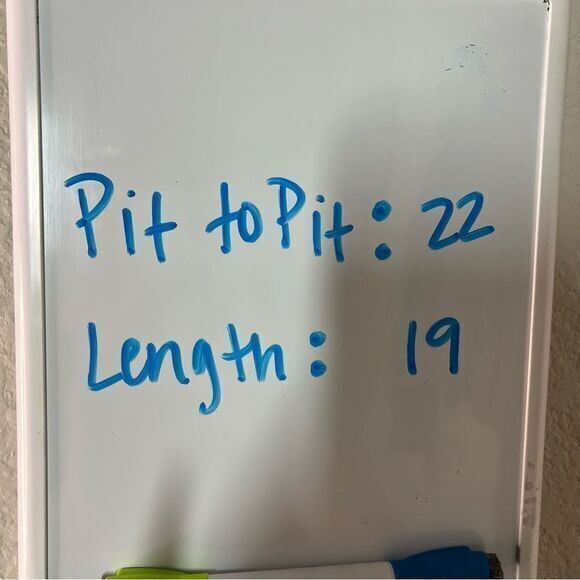 Pit to Pit: 22
Length: 19